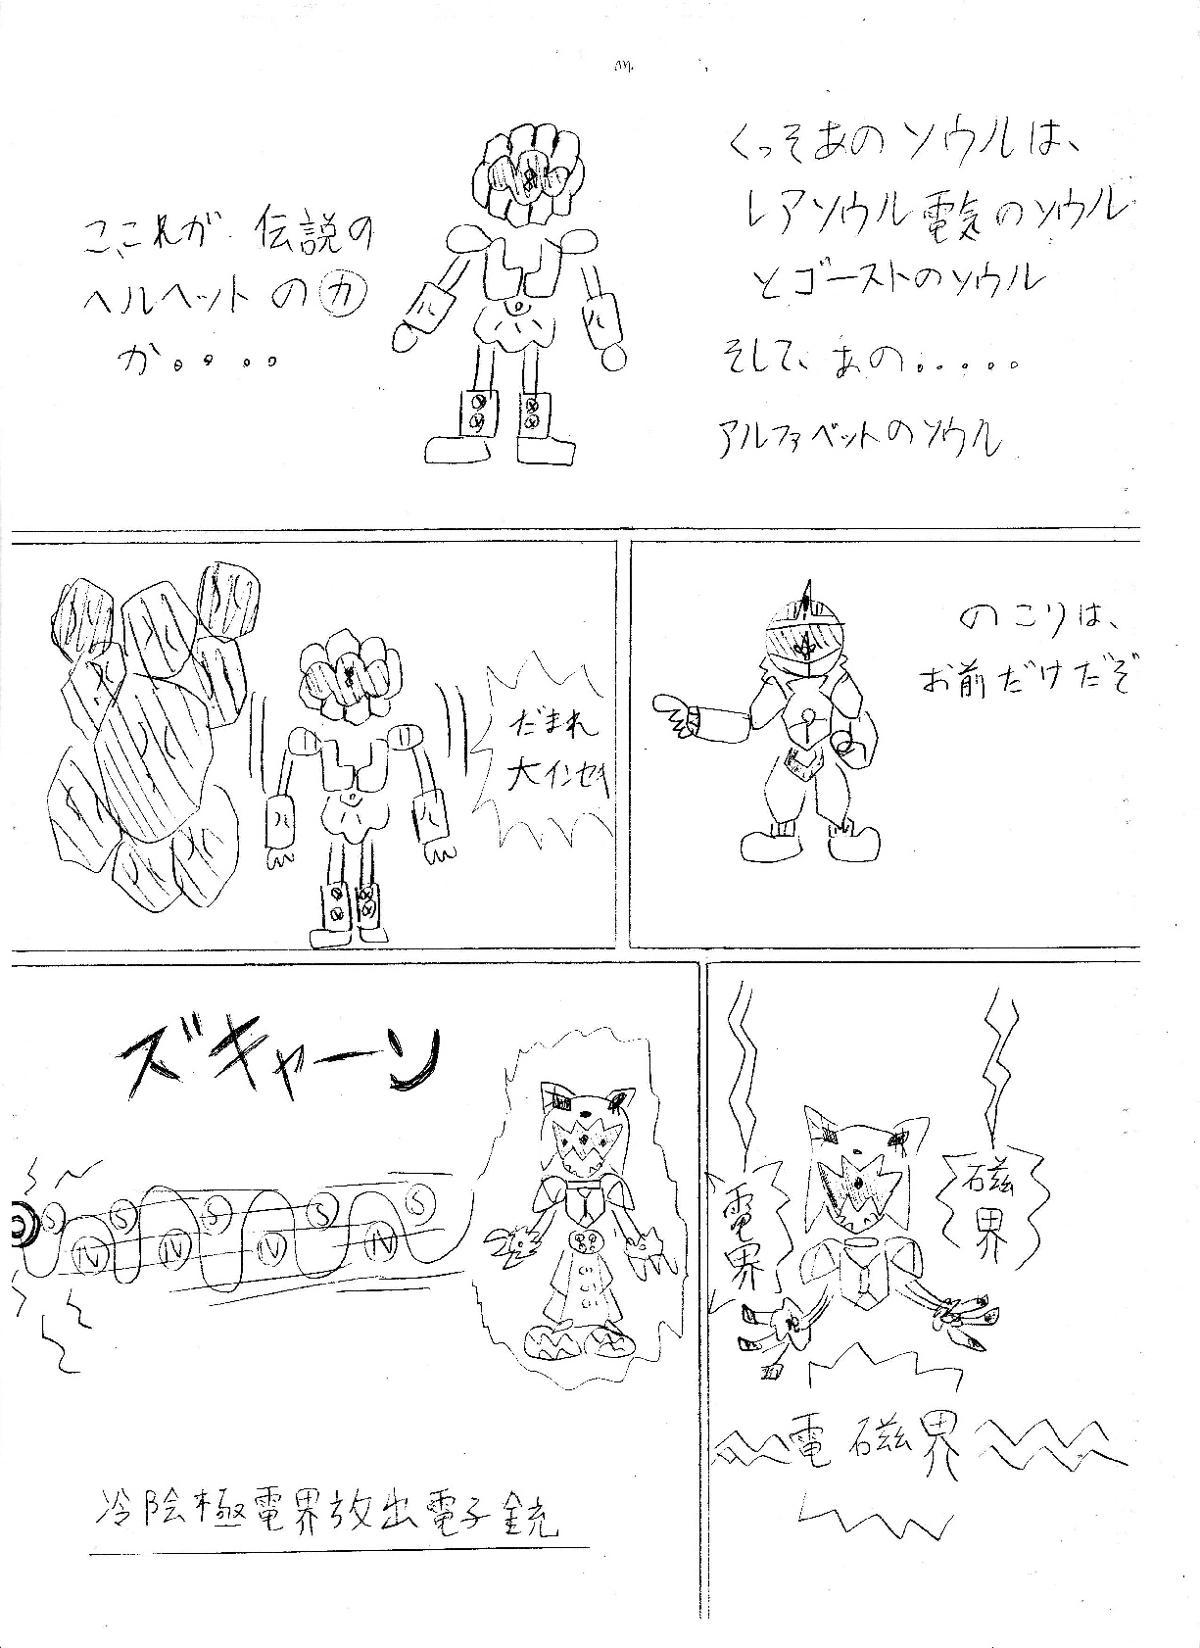 くっそあのソウルは、
レアソウル電気のソウル
とゴーストのソウル
そして、あの．．．．．
アルファベットのソウル
こ、これが伝説の
ヘルヘットの力
か。。。。
のこりは、
お前だけだぞ
だまれ
大インセキ
磁界
電界
電磁界
ズキャーン
S
S
S
S
S
N
N
N
N
冷陰極電界放出電子銃